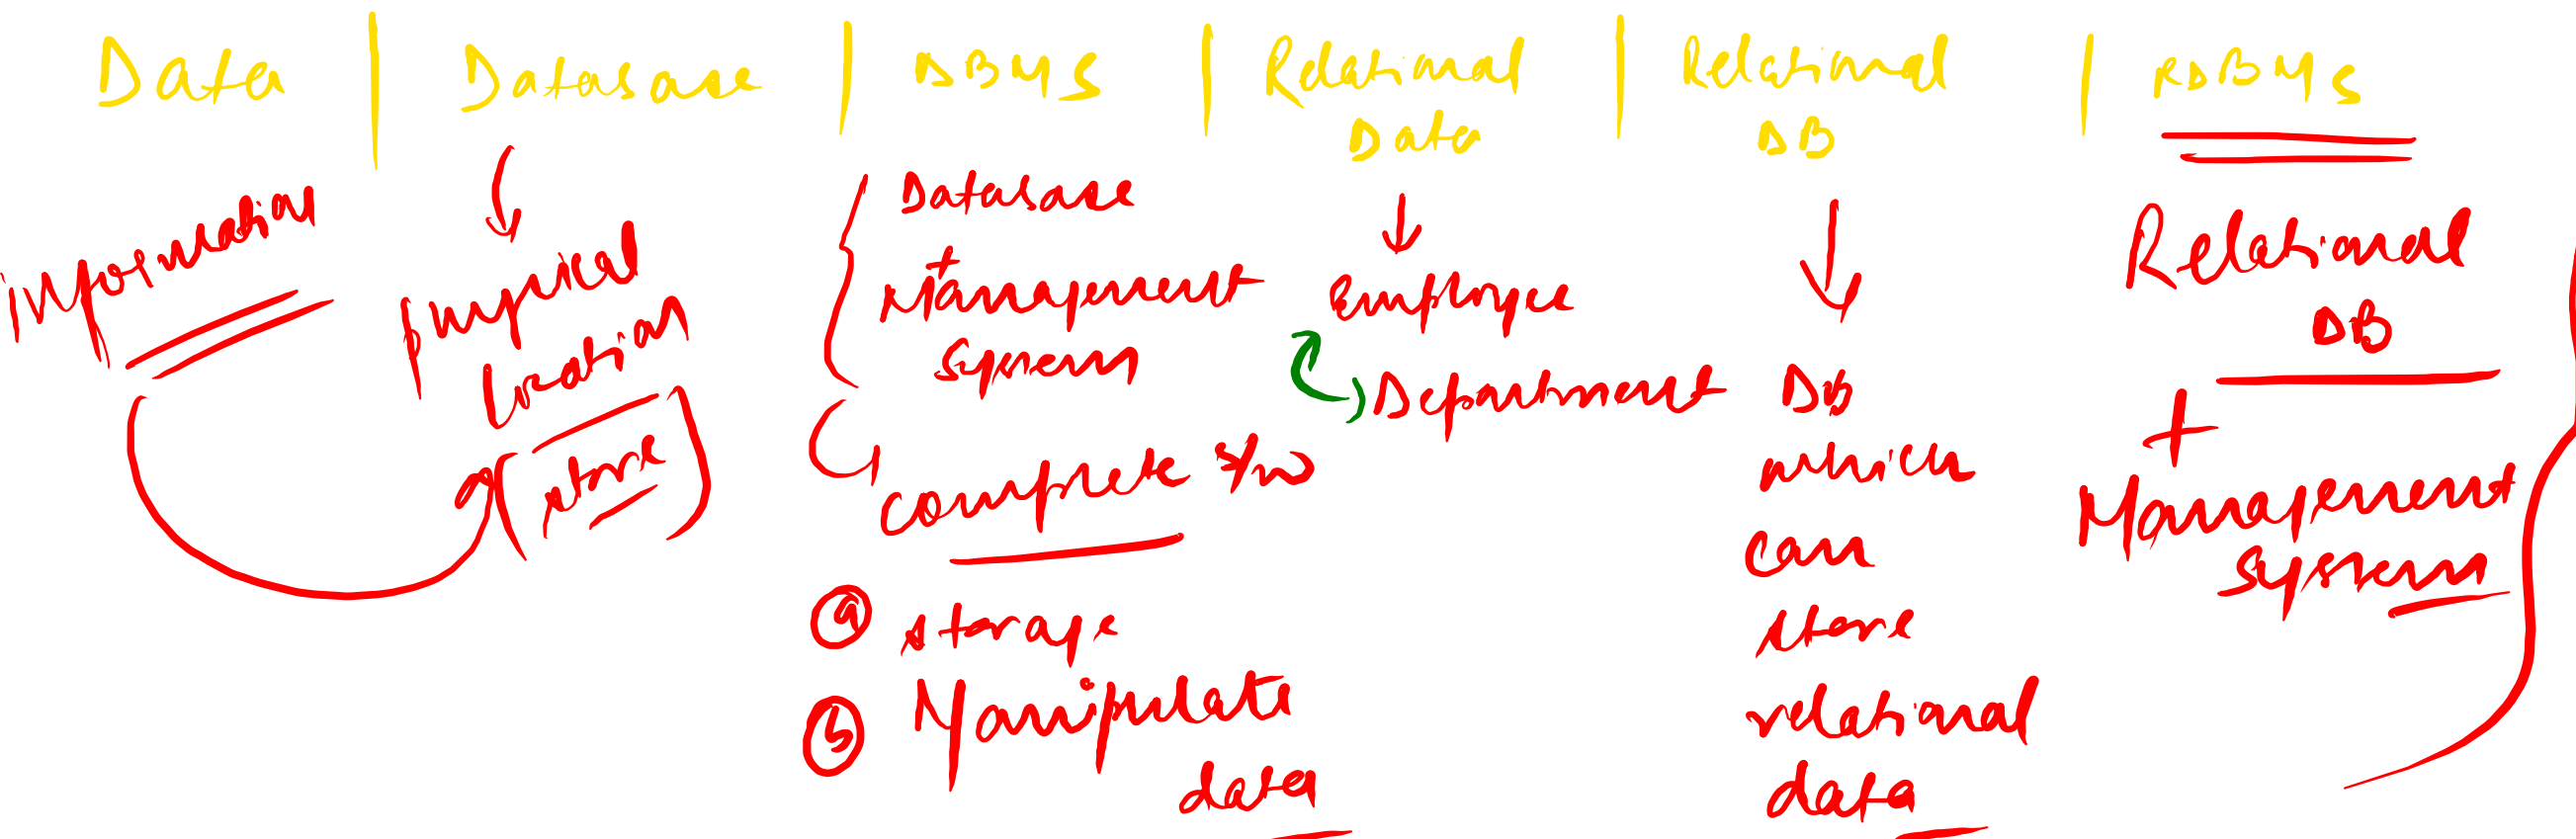 Data | Database | DBMS | Relational Data | Relational DB | RDBMS
Information
Physical
location
(store)
Database
+
Management
System
Complete s/w
(a) storage
(b) Manipulate
data
Employee
Department
DB
which
can
store
relational
data
Relational
DB
+
Management
System